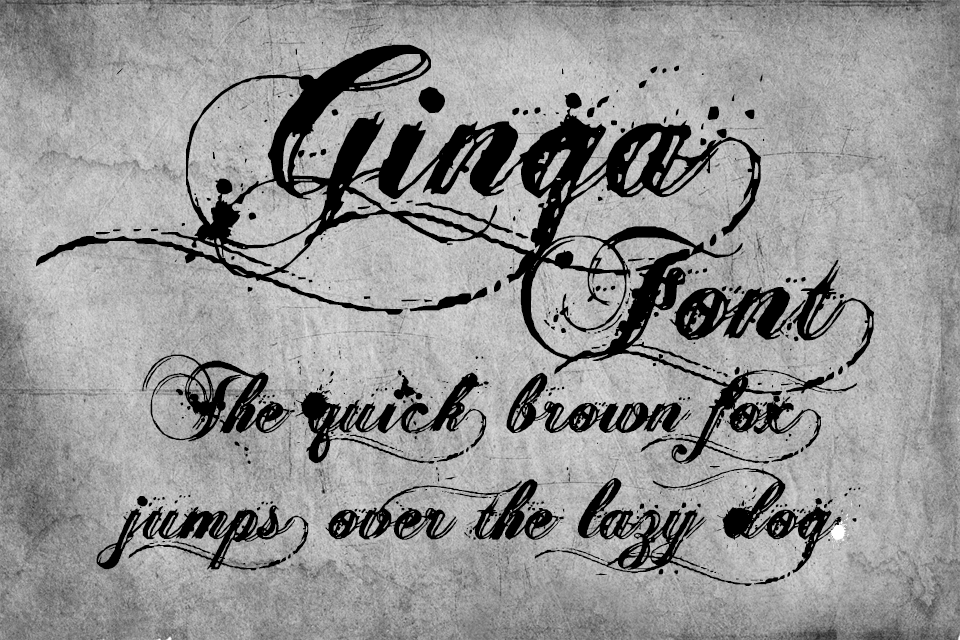 Ginga
Font
The quick brown fox
jumps over the lazy dog